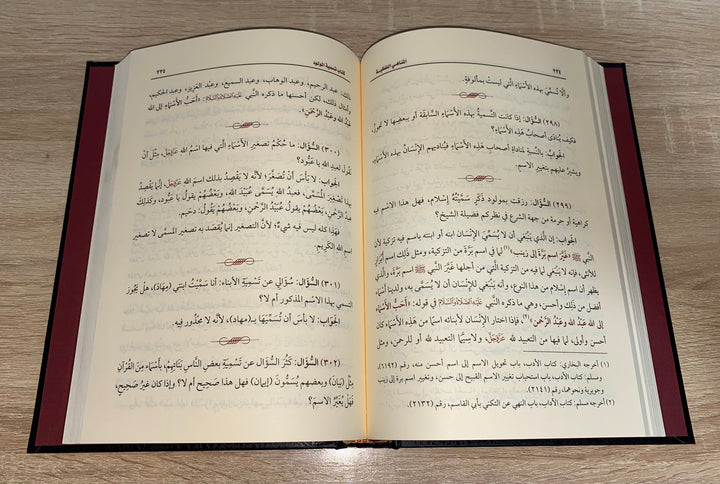 ٢٣٤
المناهي اللفظية
وألا تُسمَّى بهذه الأَسْمَاء الَّتي ليستْ بمألوفةٍ.
(٢٩٨) السُّؤال: إذا كانت التَّسميةُ بهذه الأَسْمَاء السابقة أو ببعضها لا تجوزُ، فكيف يُنادَى أصحابُ هَذِهِ الأَسْمَاءِ؟
الجوابُ: بالنِّسبة لمناداةِ أصحابِ هَذِهِ الأَسْمَاء فيُناديهم الإِنْسانُ بهذه الأَسْمَاءِ، ويُشيرُ عليهم بتغيير الاسمِ.
(٢٩٩) السُّؤال: رزقت بمولود ذَكَرٍ سَمَّيْتُهُ إسلام، فهل هذا الاسم فيه كراهية أو حرمة من جهة الشرع في نظركم فضيلة الشيخ؟
الجوابُ: إن الَّذي يَنبغي أن لا يُسمِّيَ الإِنْسان ابنه أو ابنته باسم فيه تزكية لأن النَّبي ﷺ «غَيَّرَ اسم بَرَّةَ إلى زينب»(١) لما في اسم بَرَّة من التزكية، ومثل ذلك اسم أبرار للأنثى، فإنه لا يَنبغي لما فيه من التزكية الَّتي من أجلها غَيَّرَ النَّبي ﷺ اسم بَرَّة، والَّذي يظهر أن اسم إسلام من هذا النوع، وأنه يَنبغي للإِنْسان أن لا يُسمي به، ولدينا أسماء أفضل من ذَلِكَ وأحسن، وهي ما ذكره النَّبي عَلَيْهِ الصَّلَاةُ وَالسَّلَامُ في قوله: «أَحَبُّ الأَسْمَاءِ إلى الله عبدُ الله وعبدُ الرَّحْمنِ»(٢)، فإذا اختار الإِنْسان لأبنائه اسمًا من هَذِهِ الأَسْمَاء كان أحسن وأولى، لما فيها من التعبيد لله عَزَّوَجَلَّ، ولاسيَّما التعبيد لله أو للرحمن، ومثل
(١) أخرجه البخاري: كتاب الأدب، باب تحويل الاسم إلى اسم أحسن منه، رقم (٦١٩٢)، ومسلم: كتاب الآداب، باب استحباب تغيير الاسم القبيح إلى حسن، وتغيير اسم برة إلى زينب وجويرية ونحوهما، رقم (٢١٤١).
(٢) أخرجه مسلم: كتاب الآداب، باب النهي عن التكني بأبي القاسم، رقم (٢١٣٢).
كتاب تسمية المولود
٢٣٥
ذلك: عبد الرحيم، وعبد الوهاب، وعبد السميع، وعبد العزيز، وعبد الحكيم، وأمثال ذلك، لكن أحسنها ما ذكره النَّبي عَلَيْهِ الصَّلَاةُ وَالسَّلَامُ: «أَحَبُّ الأَسْمَاءِ إلى الله عبدُ الله وعبدُ الرَّحْمَنِ».
(٣٠٠) السُّؤال: ما حُكْمُ تصغير الأَسْمَاءِ الَّتي فيها اسمُ الله عَزَّوَجَلَّ، مِثْلُ أنْ نقولَ لعبدِ الله يا عَبُّود؟
الجوابُ: لا بأسَ أنْ تُصَغَّرَ؛ لأنَّه لا يقصِدُ بذلك تصغيرَ اسمِ الله عَزَّوَجَلَّ، إنَّما يَقصِدُ تصغيرَ المسمَّى، فعبدُ الله يُسمَّى عُبَيْدَ الله، وبعضُهُمْ يقولُ يا عبود، وكذلك عبدُ الرَّحْمَنِ، بعضُهُمْ يقولُ عُبَيْدُ الرَّحْمَنِ، وبعضُهُمْ يَقُولُ: دحيم.
فهذا كله ليس فيه شيءٌ؛ لأَنَّ التصغيرَ إنما يُقصَد به تصغير المسمَّى لا تصغير اسمِ الله الكريمِ.
(٣٠١) السُّؤال: سُؤالي عن تَسْمِيَة الأبناء: أنا سمَّيتُ ابنتي (مِهاد)، هلْ يَجُوز التسمي بهذا الاسْمِ المذكور أم لا؟
الجَوَابُ: لا بأسَ أن تُسَمِّيَهَا بـ(مهاد)، لأنَّه لا مَحذورَ فيه.
(٣٠٢) السُّؤال: كَثُرَ السُّؤال عن تَسْمِيَةِ بعضِ النَّاسِ بَنَاتِهِمْ، بأَسْمَاءٍ مِنَ القُرْآنِ مِثْل (بَيَانَ) وبعضهم يُسمُّونَ (إيمان)، فهل هذا صَحِيح أم لا؟ وإذا كان غيرَ صَحِيحٍ، فهَلْ يُغيَّرُ الاسم؟